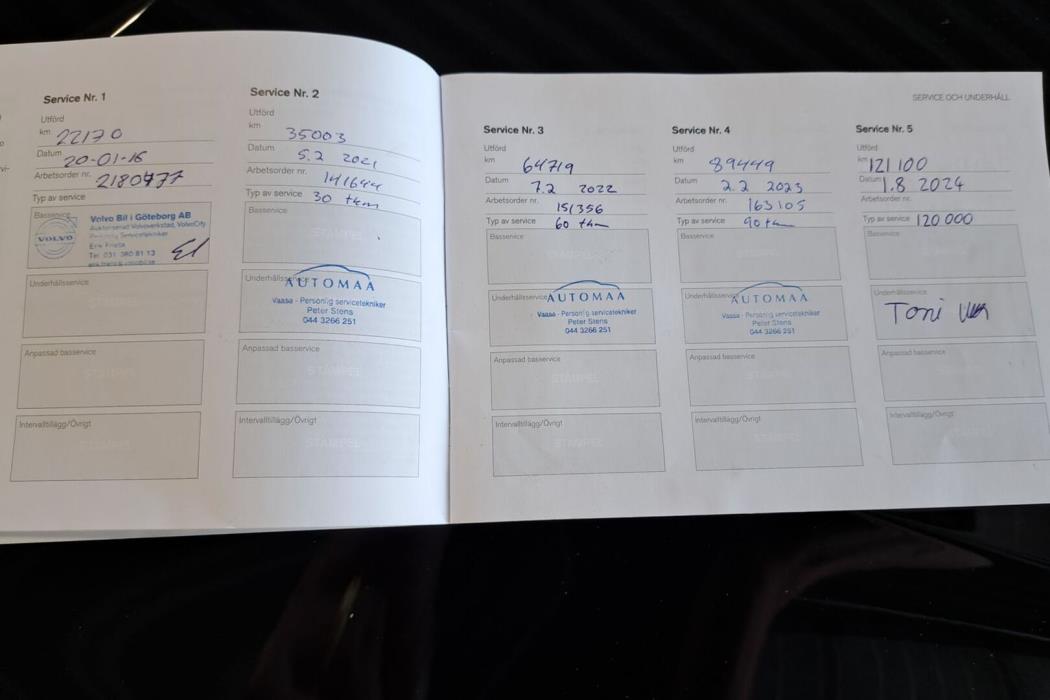 Service Nr. 1
Utförd
km 22170
Datum 20-01-16
Arbetsorder nr. 2180477
Typ av service
Basservice
VOLVO
Volvo Bil i Göteborg AB
Auktoriserad Volvoverkstad, VolvoCity
Personlig Servicetekniker
Tel. 031 380 81 13
Underhållsservice
STÄMPEL
Anpassad basservice
STÄMPEL
Intervalltillägg/Övrigt
STÄMPEL
Service Nr. 2
Utförd
km 35003
Datum 5.2 2021
Arbetsorder nr. 141644
Typ av service 30 tkm
Basservice
STÄMPEL
Underhållsservice
AUTOMAA
Vaasa - Personlig servicetekniker
Peter Stens
044 3266 251
Anpassad basservice
STÄMPEL
Intervalltillägg/Övrigt
STÄMPEL
SERVICE OCH UNDERHÅLL
Service Nr. 3
Utförd
km 64719
Datum 7.2 2022
Arbetsorder nr. 151356
Typ av service 60 tkm
Basservice
STÄMPEL
Underhållsservice
AUTOMAA
Vaasa - Personlig servicetekniker
Peter Stens
044 3266 251
Anpassad basservice
STÄMPEL
Intervalltillägg/Övrigt
STÄMPEL
Service Nr. 4
Utförd
km 89449
Datum 2.2 2023
Arbetsorder nr. 163105
Typ av service 90 tkm
Basservice
STÄMPEL
Underhållsservice
AUTOMAA
Vaasa - Personlig servicetekniker
Peter Stens
044 3266 251
Anpassad basservice
STÄMPEL
Intervalltillägg/Övrigt
STÄMPEL
Service Nr. 5
Utförd
km 121 100
Datum 1.8 2024
Arbetsorder nr.
Typ av service 120 000
Basservice
Underhållsservice
Toni
Anpassad basservice
Intervalltillägg/Övrigt